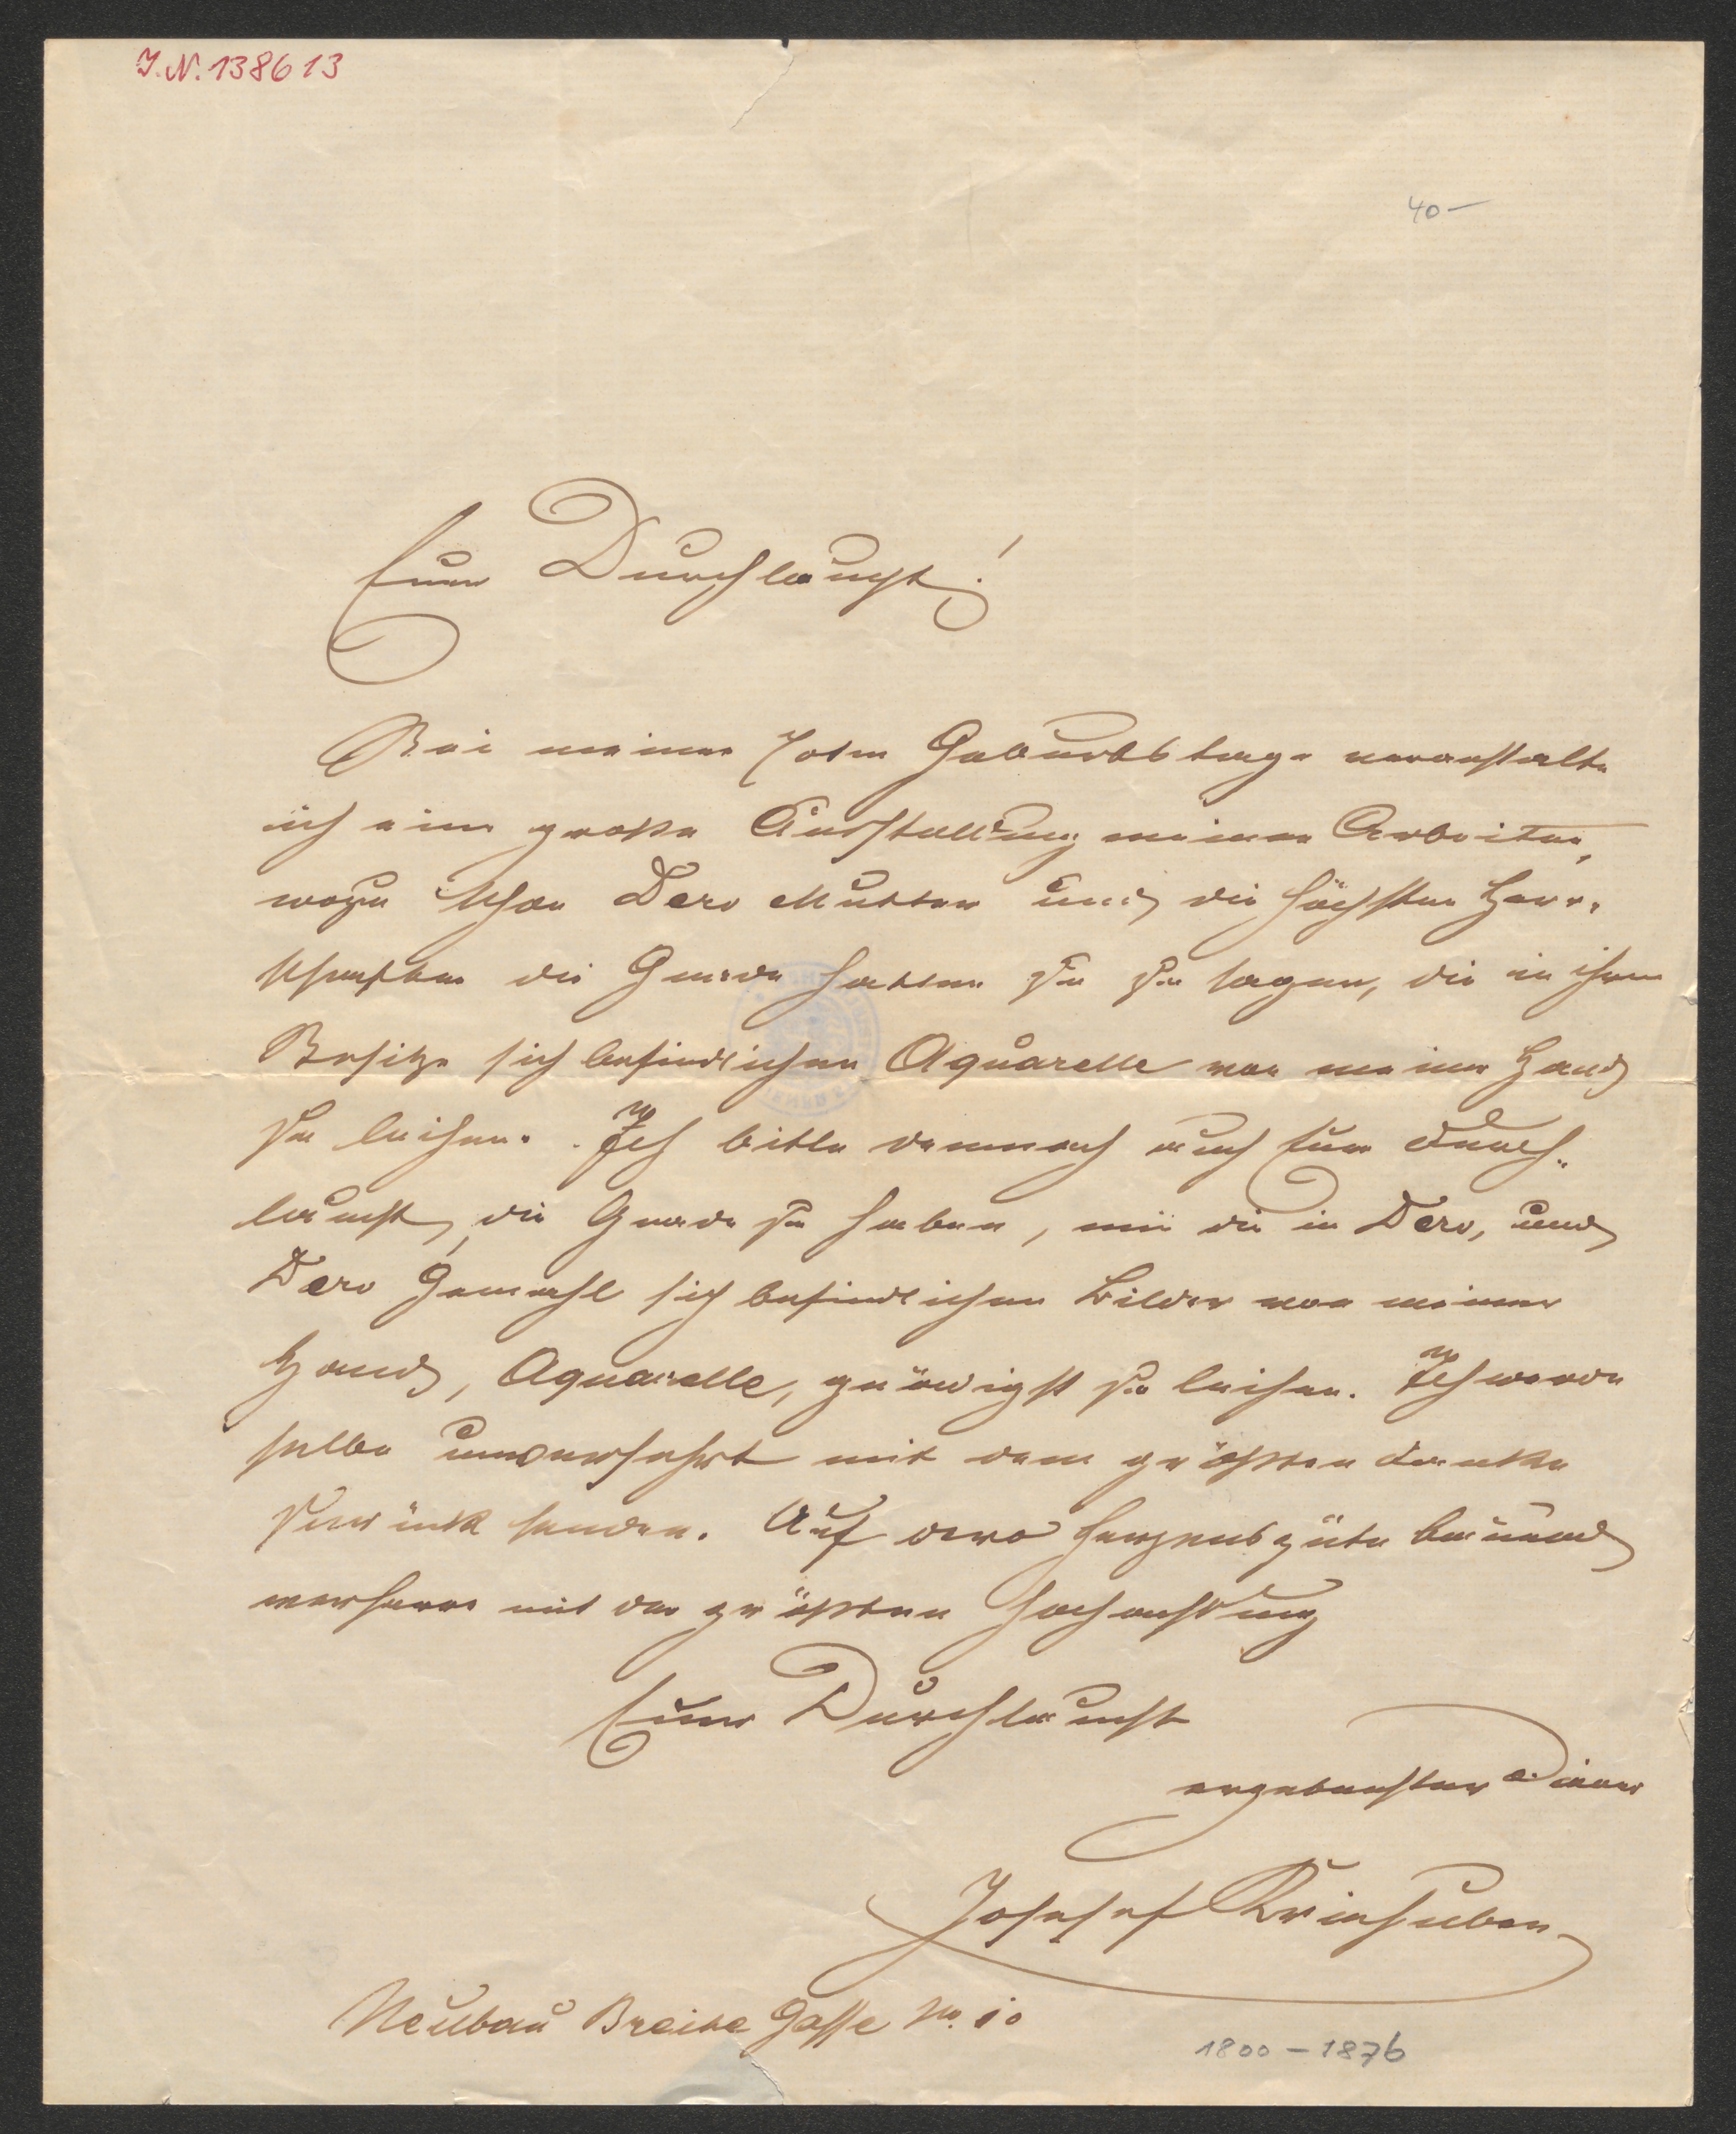 I. N. 138613
40 —
Euer Durchlaucht!
Bei meinem 70ten Geburtstage veranstalte
ich eine große Ausstellung meiner Arbeiten,
wozu schon Dero Mutter und die höchsten Herr-
schaften die Gnade hatten zu zu sagen, die in ihrem
Besitze sich befindlichen Aquarelle von meiner Hand
zu leihen. Ich bitte demnach auch Euer Durch-
laucht, die Gnade zu haben, mir die in Dero, und
Dero Gemahl sich befindlichen Bilder von meiner
Hand, Aquarelle, gnädigst zu leihen. Ich werde
selbe unversehrt mit dem größten Danke
zurück senden. Auf dero Herzensgüte bauend
verharre mit der größten Hochachtung
Euer Durchlaucht
ergebenster Diener
Josef Kriehuber
Neubau Breite Gasse No. 10
1800 – 1876